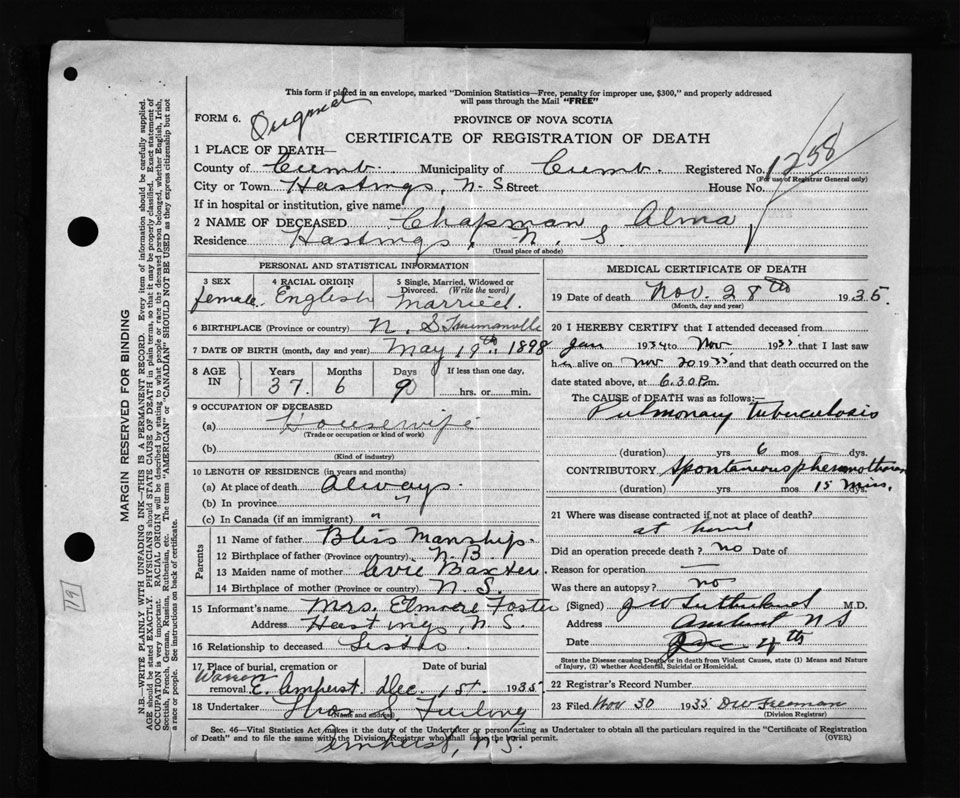 This form if placed in an envelope, marked "Dominion Statistics—Free, penalty for improper use, $300," and properly addressed
will pass through the Mail "FREE"
FORM 6. Original
PROVINCE OF NOVA SCOTIA
CERTIFICATE OF REGISTRATION OF DEATH
1 PLACE OF DEATH—
County of Cumb. Municipality of Cumb. Registered No. 1258
(For use of Registrar General only)
City or Town Hastings, N.S. Street House No.
If in hospital or institution, give name
2 NAME OF DECEASED Chapman Alma
Residence Hastings, N. S.
(Usual place of abode)
PERSONAL AND STATISTICAL INFORMATION
3 SEX 4 RACIAL ORIGIN 5 Single, Married, Widowed or Divorced. (Write the word)
female. English Married.
6 BIRTHPLACE (Province or country) N. S.
7 DATE OF BIRTH (month, day and year) May 19th, 1898
8 AGE IN Years Months Days If less than one day,
37. 6 9 hrs. or min.
9 OCCUPATION OF DECEASED
(a) Housewife
(Trade or occupation or kind of work)
(b)
(Kind of industry)
10 LENGTH OF RESIDENCE (in years and months)
(a) At place of death Always.
(b) In province "
(c) In Canada (if an immigrant) "
Parents
11 Name of father Bliss Manship.
12 Birthplace of father (Province or country) N.B.
13 Maiden name of mother Avie Baxter.
14 Birthplace of mother (Province or country) N.S.
15 Informant's name Mrs. Elmore Foster
Address Hastings, N.S.
16 Relationship to deceased Sister
17 Place of burial, cremation or removal. Date of burial
Warren E. Amherst. Dec. 1st. 1935
18 Undertaker Thos S Furlong
(Name and address)
Amherst, N.S.
MEDICAL CERTIFICATE OF DEATH
19 Date of death Nov. 28th 1935.
(Month, day and year)
20 I HEREBY CERTIFY that I attended deceased from
Jan 1934 to Nov 1935 that I last saw
h alive on Nov 20 1935 and that death occurred on the
date stated above, at 6.30 P.m.
The CAUSE of DEATH was as follows:—
Pulmonary tuberculosis
(duration) yrs 6 mos dys.
CONTRIBUTORY Spontaneous
(duration) yrs mos 15 mins. dys.
21 Where was disease contracted if not at place of death?
at home
Did an operation precede death? no Date of
Reason for operation —
Was there an autopsy? no
(Signed) J W Sutherland M.D.
Address Amherst N S
Date Dec 4th
State the Disease causing Death, or in death from Violent Causes, state (1) Means and Nature
of Injury, (2) whether Accidental, Suicidal or Homicidal.
22 Registrar's Record Number
23 Filed Nov 30 1935 DW Freeman
(Division Registrar)
Sec. 46—Vital Statistics Act makes it the duty of the Undertaker or person acting as Undertaker to obtain all the particulars required in the "Certificate of Registration
of Death" and to file the same with the Division Registrar who shall issue the burial permit. (OVER)
MARGIN RESERVED FOR BINDING
N.B.—WRITE PLAINLY WITH UNFADING INK—THIS IS A PERMANENT RECORD. Every item of information should be carefully supplied.
AGE should be stated EXACTLY. PHYSICIANS should STATE CAUSE OF DEATH in plain terms, so that it may be properly classified. Exact statement of
OCCUPATION is very important. RACIAL ORIGIN will be described by stating to what people or race the deceased person belonged, whether English, Irish,
Scottish, French, German, Russian, Ruthenian, etc. The terms "AMERICAN" or "CANADIAN" SHOULD NOT BE USED as they express citizenship but not
a race or people. See instructions on back of certificate.
191